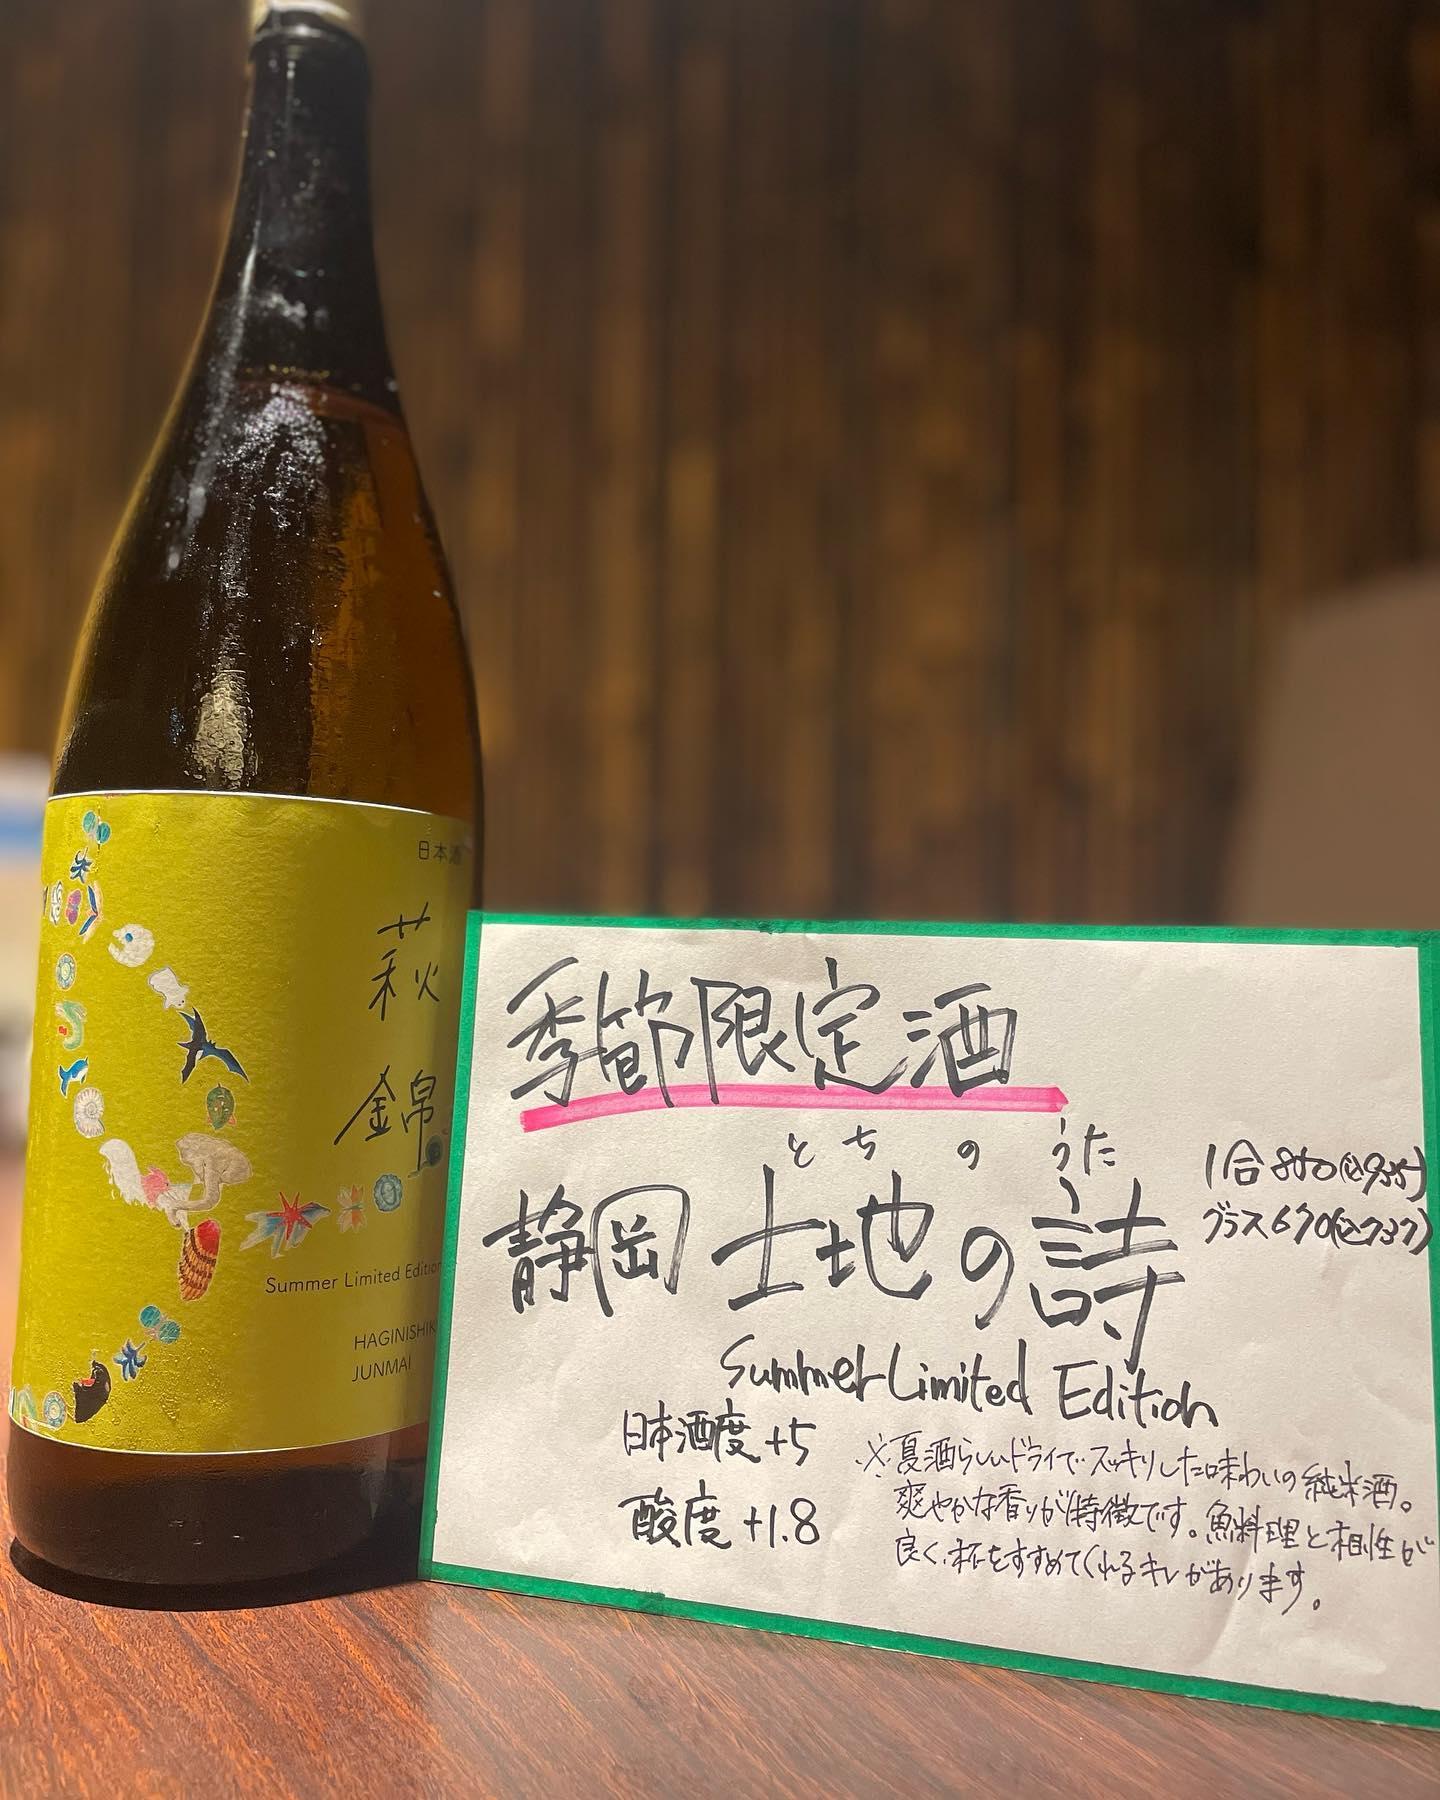 日本酒
萩
錦
Summer Limited Edition
HAGINISHIK
JUNMAI
季節限定酒
とちのうた
静岡 土地の詩
1合850(込935)
グラス670(込737)
Summer Limited Edition
日本酒度+5
酸度+1.8
※夏酒らしいドライでスッキリした味わいの純米酒。
爽やかな香りが特徴です。魚料理と相性が
良く、杯をすすめてくれるキレがあります。